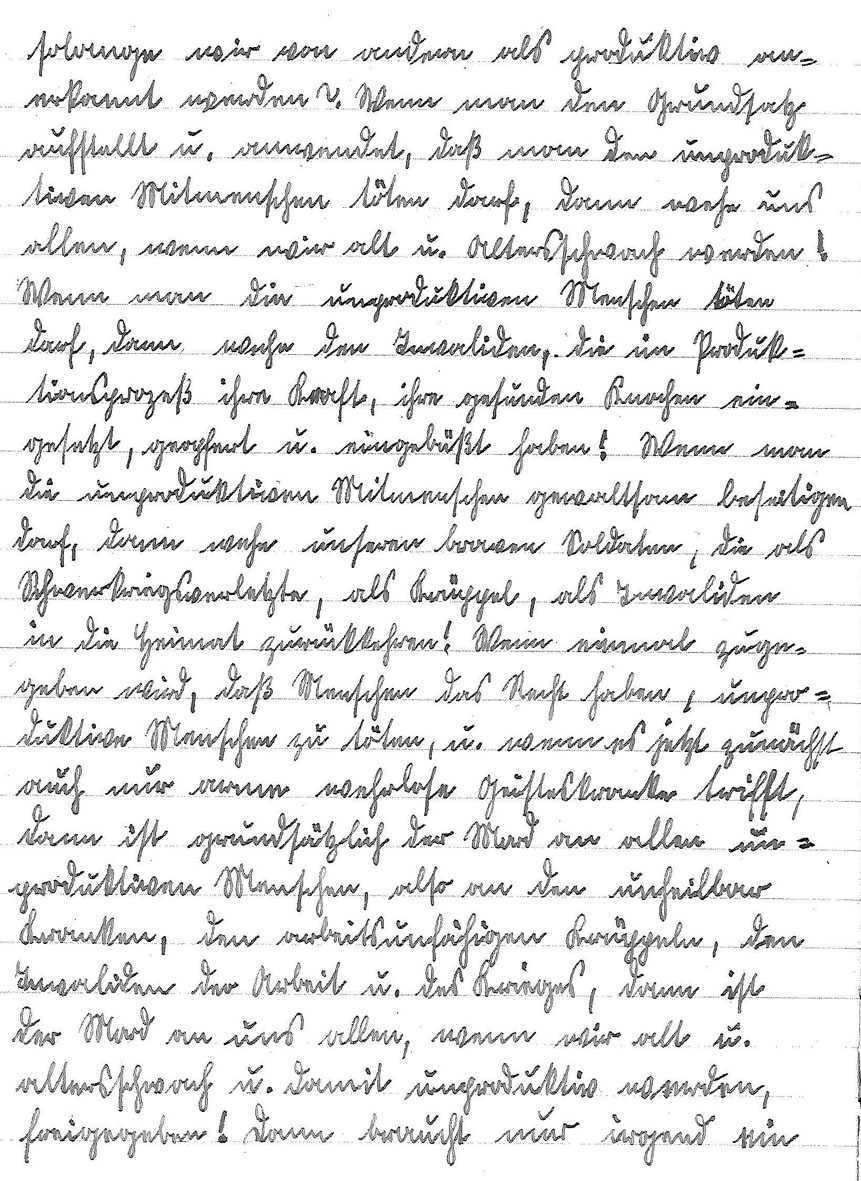 solange wir von andern als produktiv an=
erkannt werden?. Wenn man den Grundsatz
aufstellt u. anwendet, daß man den unproduk=
tiven Mitmenschen töten darf, dann wehe uns
allen, wenn wir alt u. altersschwach werden!
Wenn man die unproduktiven Menschen töten
darf, dann wehe den Invaliden, die im Produk=
tionsprozeß ihre Kraft, ihre gesunden Knochen ein=
gesetzt, geopfert u. eingebüßt haben! Wenn man
die unproduktiven Mitmenschen gewaltsam beseitigen
darf, dann wehe unseren braven Soldaten, die als
Schwerkriegsverletzte, als Krüppel, als Invaliden
in die Heimat zurückkehren! Wenn einmal zuge=
geben wird, daß Menschen das Recht haben, unpro=
duktive Menschen zu töten, u. wenn es jetzt zunächst
auch nur arme wehrlose Geisteskranke trifft,
dann ist grundsätzlich der Mord an allen un=
produktiven Menschen, also an den unheilbar
Kranken, den arbeitsunfähigen Krüppeln, den
Invaliden der Arbeit u. des Krieges, dann ist
der Mord an uns allen, wenn wir alt u.
altersschwach u. damit unproduktiv werden,
freigegeben! Dann braucht nur irgend ein